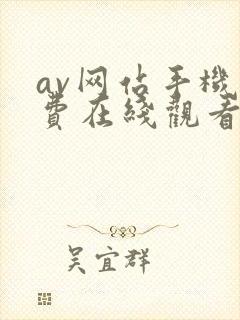 av网佔手機
費在綫觀看
吴宜群